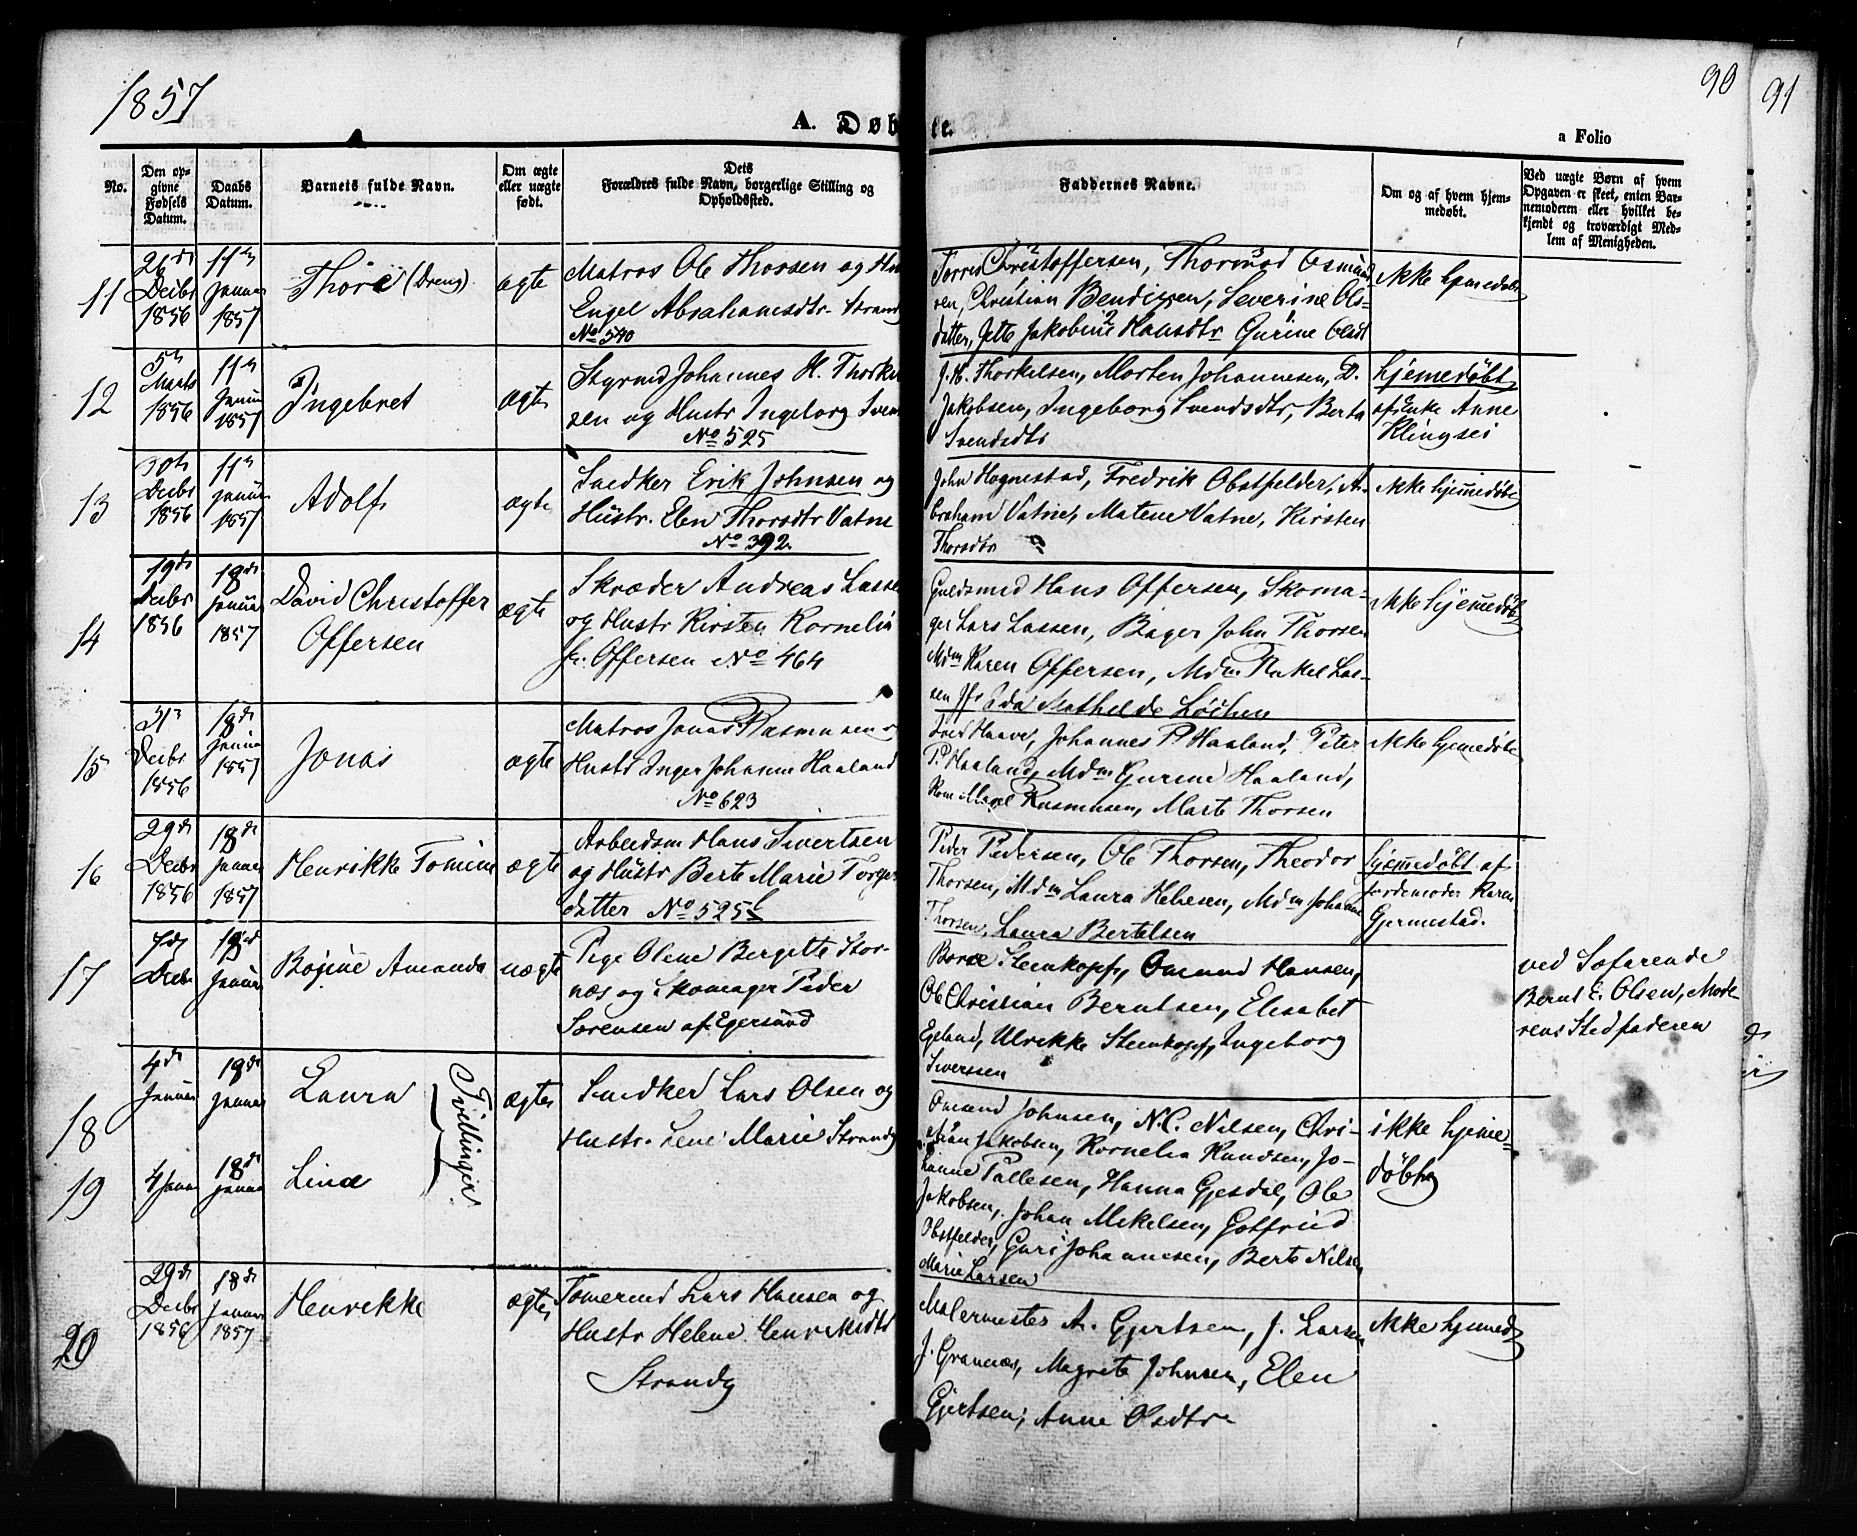 1857
90
91
A. Døbte.
a Folio
No.
Den opgivne Fødsels Datum.
Daabs Datum.
Barnets fulde Navn.
Om ægte eller uægte født.
Dets Forældres fulde Navn, borgerlige Stilling og Opholdssted.
Faddernes Navne.
Om og af hvem hjemmedøbt.
Ved uægte Børn af hvem Opgaven er skeet, enten Barnemoderen eller hvilket bekjendt og troværdigt Medlem af Menigheden.
11
26de Decbr 1856
11te Januar 1857
Thore (Dreng)
ægte
Matros Ole Thorsen og
Engel Abrahamsdtr. Strand
No 540
Torres Christoffersen, Thormod Osmund-
sen, Christian Bendixen, Severine Ols-
datter, Jette Jakobine Hansdtr Gurine Olsdt
ikke hjemedøbt
12
5te Marts 1856
11te Januar 1857
Ingebret
ægte
Styrmd Johannes H. Thorkel
sen og Hustr Ingeborg Svend
No 525
J. H. Thorkelsen, Morten Johannesen, D.
Jakobsen, Ingeborg Svendsdtr, Berta
Svendsdtr
hjemedøbt
af Enke Anne
Klingsei
13
30te Decbr 1856
11te Januar 1857
Adolf
ægte
Snedker Erik Johnsen og
Hustr. Elen Thorsdtr Vatne
No 392.
John Hognestad, Fredrik Obstfelder, A-
braham Vatne, Matene Vatne, Kirsten
Thorsdtr
ikke hjemmedøbt
14
19de Decbr 1856
18de Januar 1857
David Christoffer
Offersen
ægte
Skræder Andreas Lassen
og Hustr Kirsten Kornelia
f. Offersen No 464
Guldsmed Hans Offersen, Skoma-
ger Lars Lassen, Bager John Thorsen
Mdm Karen Offersen, Mdm Rakel Las-
sen Jfr Ida Mathilde Løchen
ikke hjemmedøbt
15
31te Decbr 1856
18de Januar 1857
Jonas
ægte
Matros Jonas Rasmusen
Hustr Inger Johanne Haaland
No 623
Haave, Johannes P. Haaland, Peter
P. Haaland, Mdm Gurine Haaland,
Rasmusen, Marte Thorsen
ikke hjemedøbt
16
29de Decbr 1856
18de Januar 1857
Henrikke Tomine
ægte
Arbeidsm Hans Sivertsen
og Hustr Berte Marie Torger
datter No 525 b
Peder Pedersen, Ole Thorsen, Theodor
Thorsen, Mdm Laura Helgesen, Mdm Johanne
Thorsen, Laura Bertelsen
hjemmedøbt af
Jordemoder Karen
Gjermestad.
17
7de Decbr
18de Januar
Bojine Amanda
uægte
Pige Olene Bergitte Stor-
næs og Skomager Peder
Sørensen af Egersund
Børre Steenkopf, Omund Hansen,
Ole Christian Berntsen, Elisabet
Egeland, Ulrikke Steenkopf, Ingeborg
Sivertsen
ved Søfarende
Bernt E. Olsen, Mode-
rens Stedfaderen
18
4de Januar
18de Januar
Laura
Tvillinger
ægte
Snedker Lars Olsen og
Hustr. Lene Marie Strandg
19
4 Januar
18de Januar
Line
Omund Johnsen, N. C. Nilsen, Chri-
stian Jakobsen, Kornelia Knudsen, Jo-
hanne Pallesen, Hanna Gjesdal, Ole
Jakobsen, Johan Mikelsen, Gotfried
Obstfelder, Guri Johannesen, Berte Nilsen
Marie Larsen
ikke hjemme-
døbt
20
29de Decbr 1856
18de Januar 1857
Henrikke
ægte
Tømermd Lars Hansen og
Hustr Helene Henriksdtr
Strandg
Malermester A. Gjertsen, J. Larsen
J. Grannæs, Magrete Johnsen, Elen
Gjertsen, Anne Olsdtr
ikke hjemmed